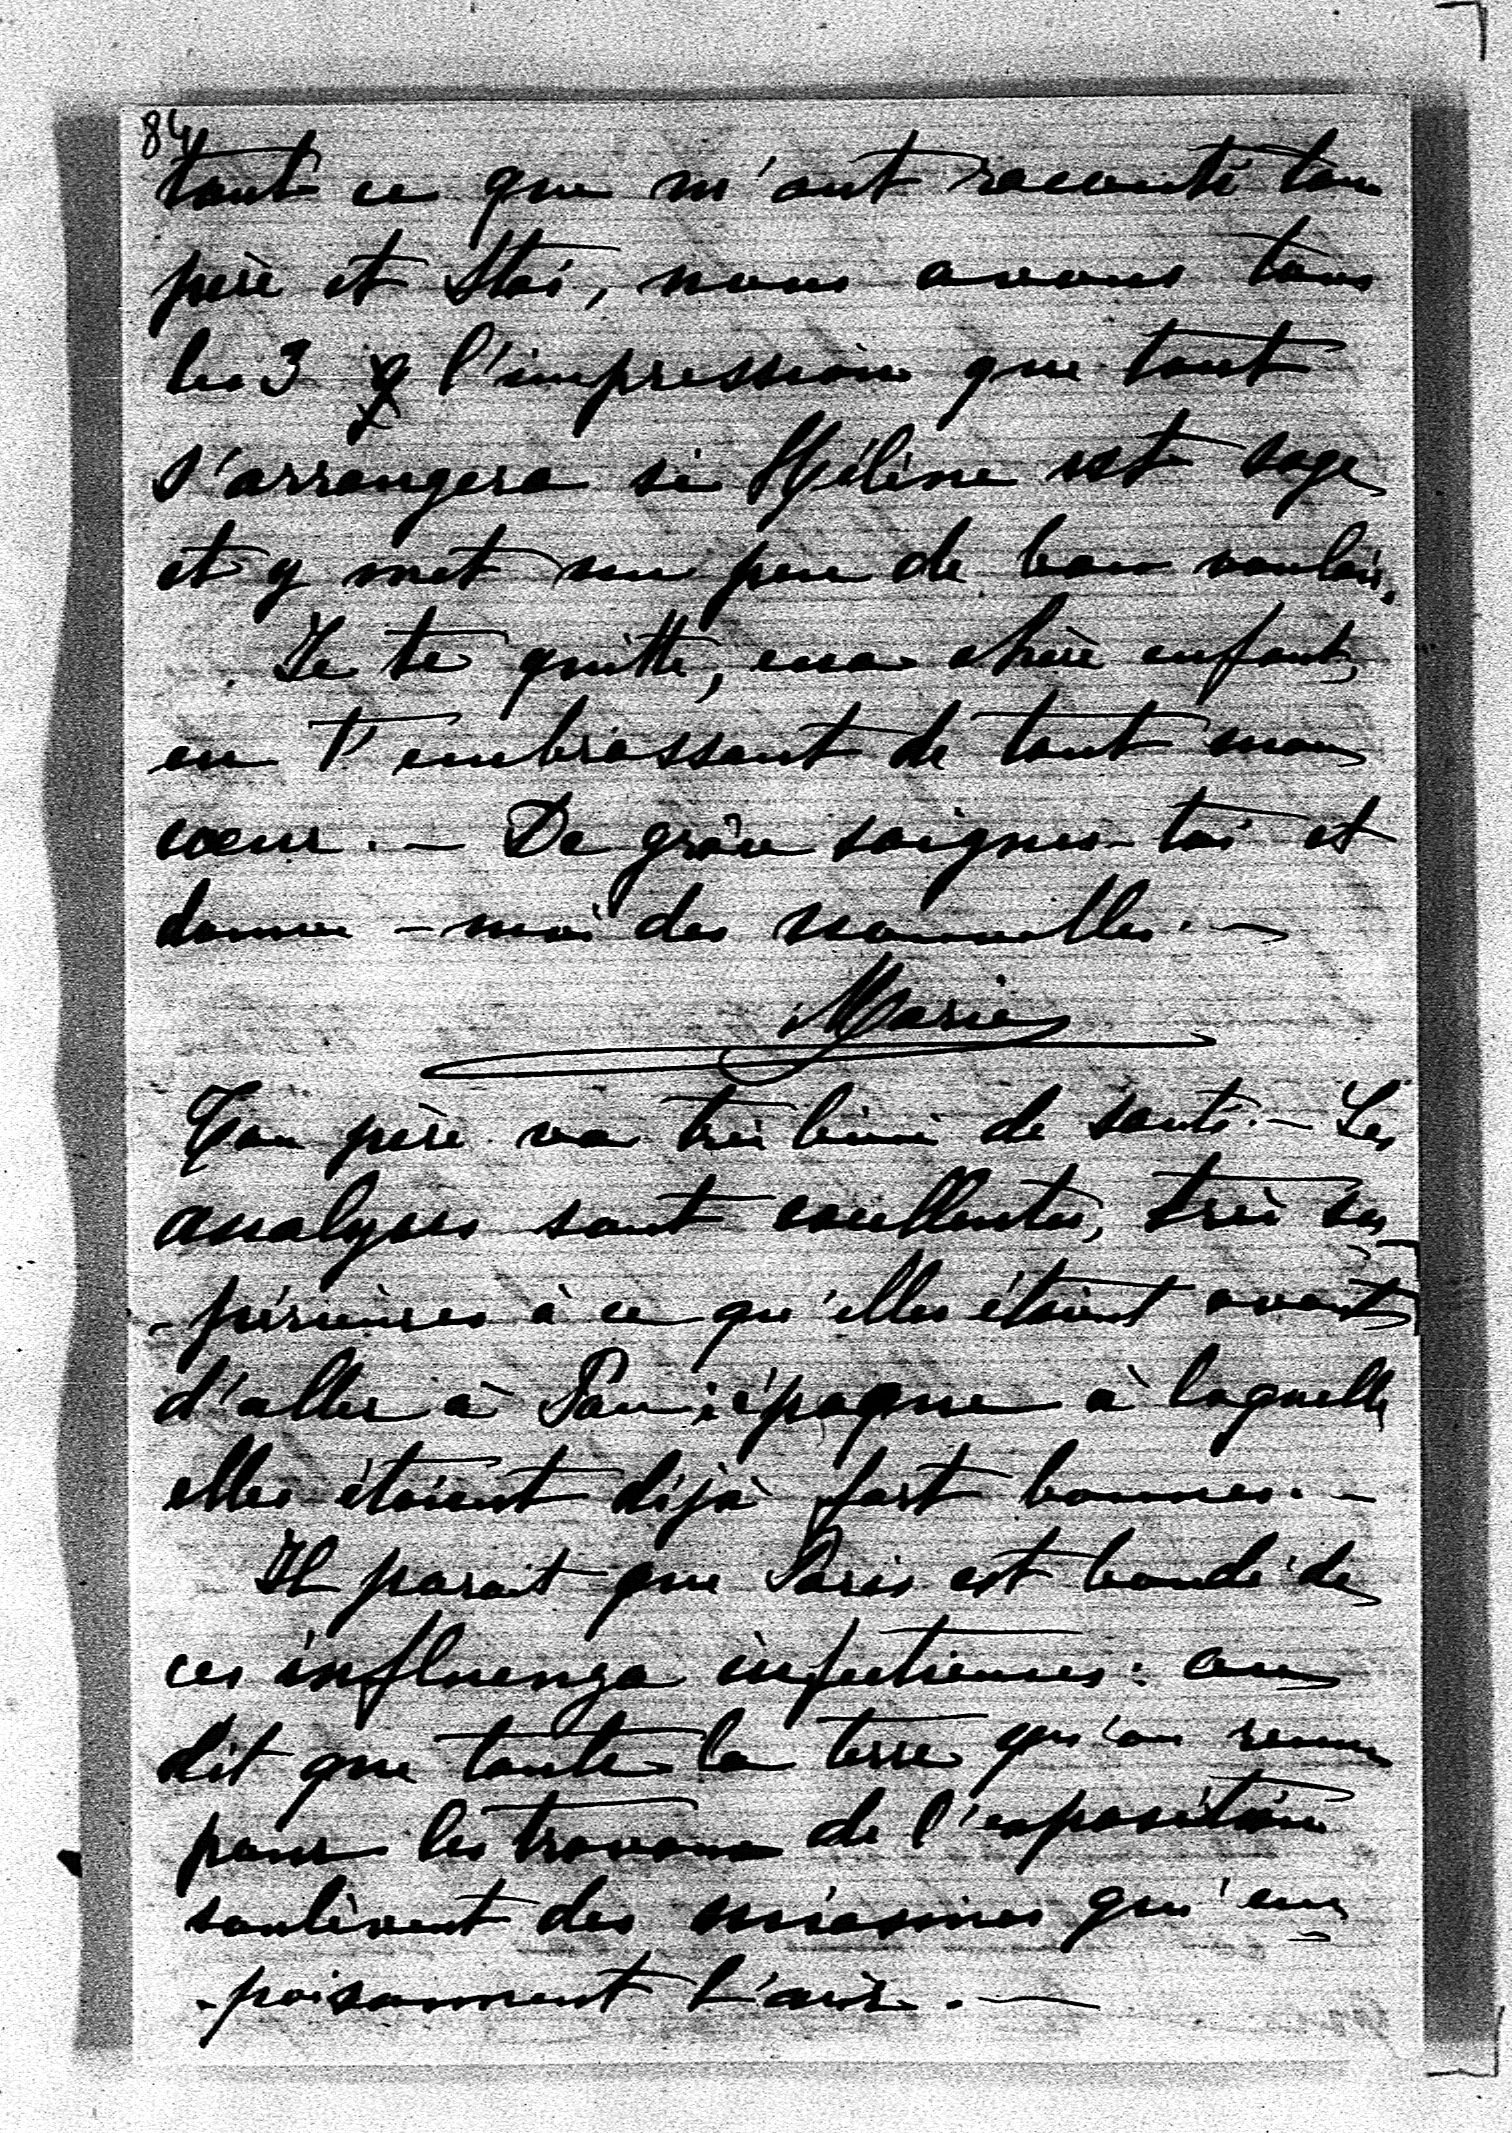 84
tout ce que m'ont raconté ton
père et Stas, nous avons tous
les 3 l'impression que tout
s'arrangera si Hélène est sage
et y met un peu de bon vouloir.
Je te quitte, ma chère enfant,
en t'embrassant de tout mon
cœur. — De grâce soignes-toi et
donne-moi des nouvelles. —
Marie
Ton père va très bien de santé. — Les
analyses sont excellentes, très su
-périeures à ce qu'elles étaient avant
d'aller à Pau; époque à laquelle
elles étaient déjà fort bonnes. —
Il parait que Paris est bondé de
ces influenza infectieuses: on
dit que toute la terre qu'on remue
pour les travaux de l'exposition
soulèvent des miasmes qui em
-poisonnent l'air. —